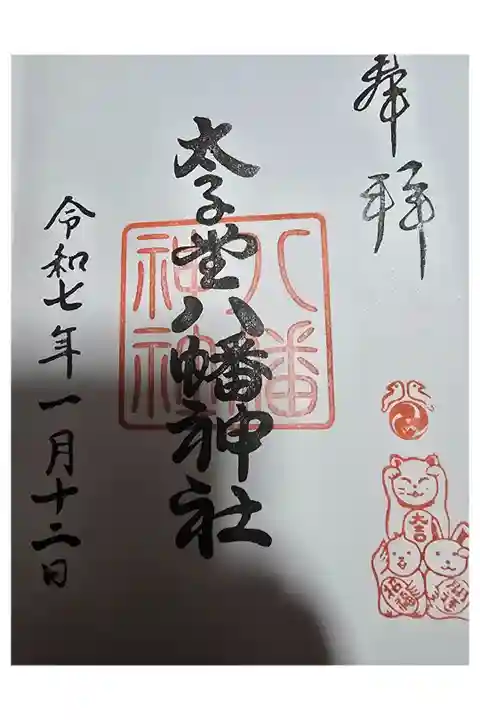 奉拝
太子堂八幡神社
八幡
神社
令和七年一月十二日
大吉
招福